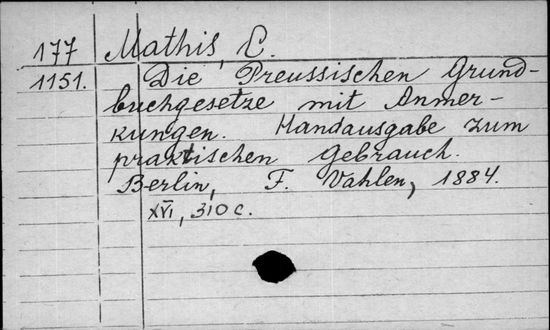 177 Mathis, C.
1151. Die Preussischen Grund-
buchgesetze mit Anmer-
kungen. Handausgabe zum
praktischen Gebrauch.
Berlin, F. Vahlen, 1884.
XVI, 310 c.